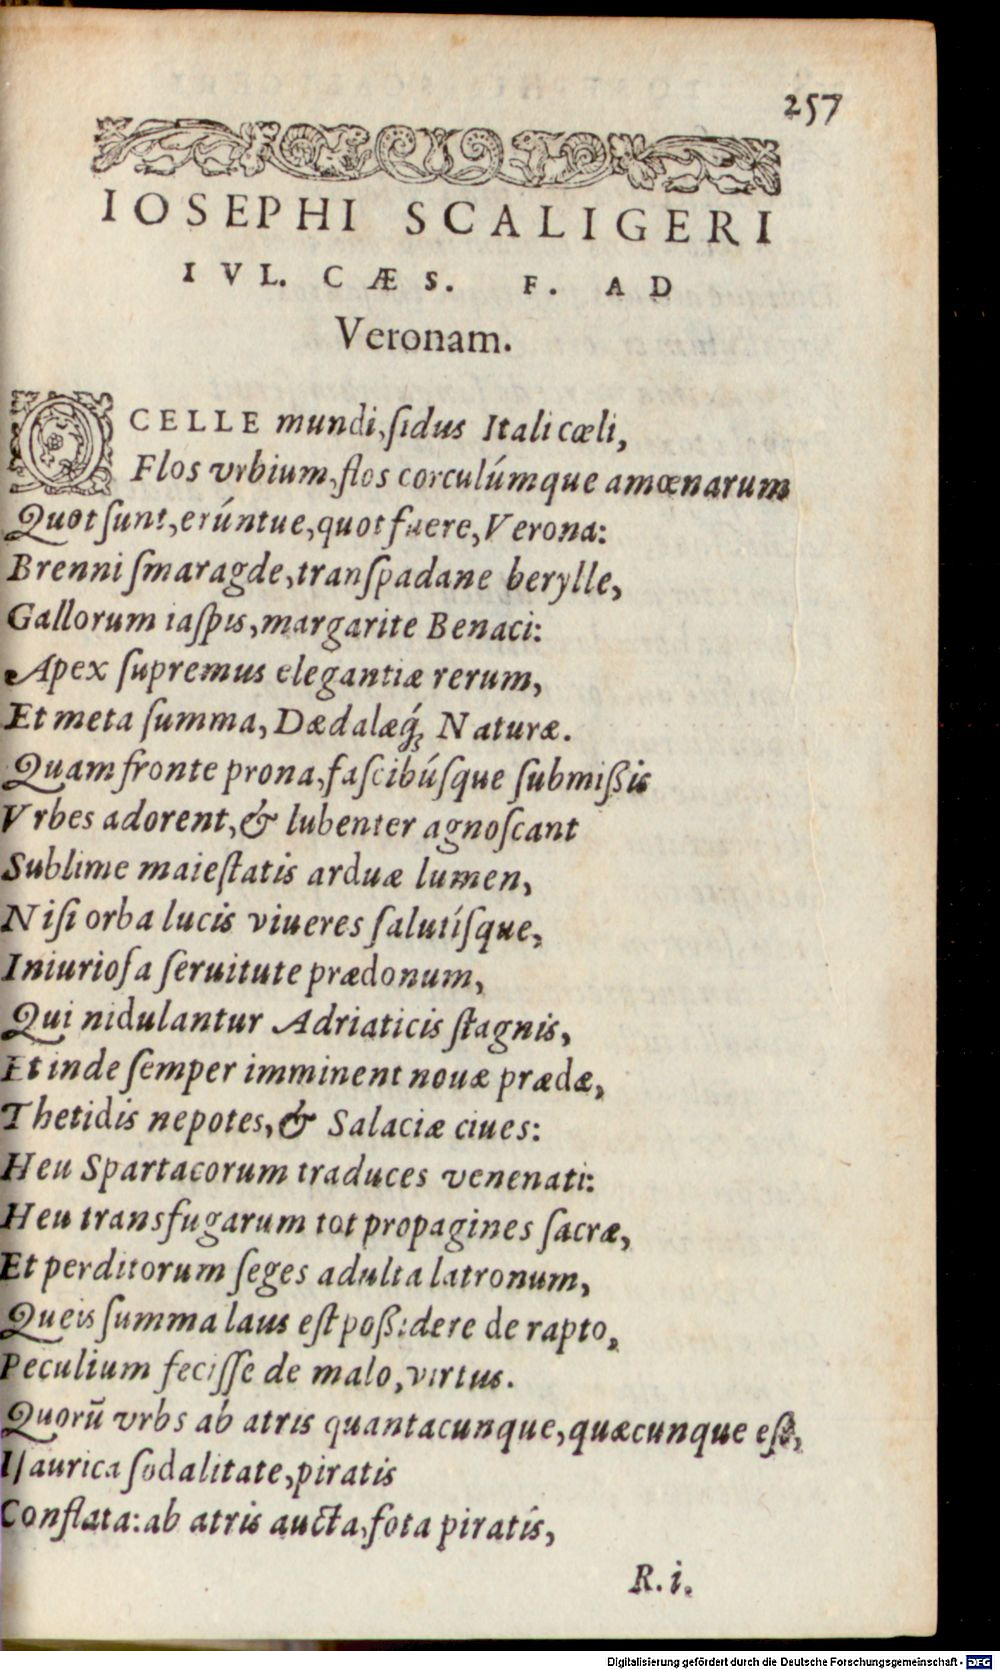 257
IOSEPHI SCALIGERI
IVL. CÆS. F. AD
Veronam.
OCELLE mundi, ſidus Itali cœli,
Flos vrbium, flos corculúmque amœnarum
Quot ſunt, erúntue, quot fuere, Verona:
Brenni ſmaragde, tranſpadane berylle,
Gallorum iaſpis, margarite Benaci:
Apex ſupremus elegantiæ rerum,
Et meta ſumma, Dædalæq́; Naturæ.
Quam fronte prona, faſcibúſque ſubmißis
Vrbes adorent, & lubenter agnoſcant
Sublime maieſtatis arduæ lumen,
Niſi orba lucis viueres ſalutíſque,
Iniurioſa ſeruitute prædonum,
Qui nidulantur Adriaticis ſtagnis,
Et inde ſemper imminent nouæ prædæ,
Thetidis nepotes, & Salaciæ ciues:
Heu Spartacorum traduces venenati:
Heu transfugarum tot propagines ſacræ,
Et perditorum ſeges adulta latronum,
Queis ſumma laus eſt poßidere de rapto,
Peculium feciſſe de malo, virtus.
Quorũ vrbs ab atris quantacunque, quæcunque eſt,
Iſaurica ſodalitate, piratis
Conflata: ab atris aucta, fota piratis,
R. i.
Digitalisierung gefördert durch die Deutsche Forschungsgemeinschaft - DFG